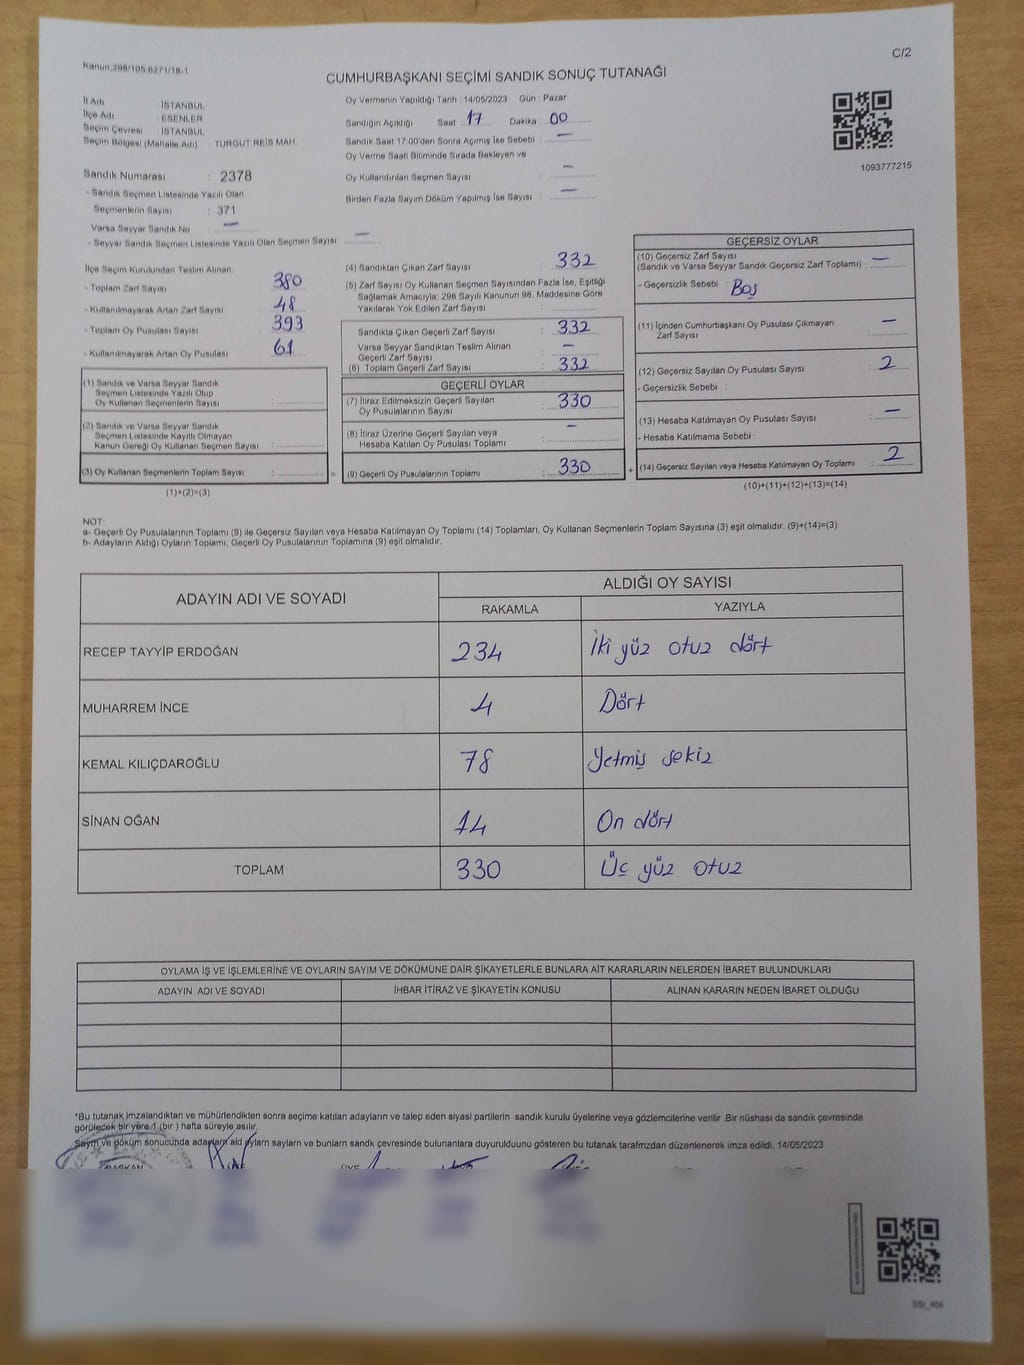 Kanun.298/105.6271/18-1
C/2
CUMHURBAŞKANI SEÇİMİ SANDIK SONUÇ TUTANAĞI
İl Adı : İSTANBUL
İlçe Adı : ESENLER
Seçim Çevresi : İSTANBUL
Seçim Bölgesi (Mahalle Adı) : TURGUT REİS MAH.
Sandık Numarası : 2378
- Sandık Seçmen Listesinde Yazılı Olan
Seçmenlerin Sayısı : 371
Varsa Seyyar Sandık No : —
- Seyyar Sandık Seçmen Listesinde Yazılı Olan Seçmen Sayısı : —
Oy Vermenin Yapıldığı Tarih : 14/05/2023 Gün : Pazar
Sandığın Açıldığı Saat : 17 Dakika : 00
Sandık Saat 17.00'den Sonra Açımış İse Sebebi : —
Oy Verme Saati Bitiminde Sırada Bekleyen ve
Oy Kullandırılan Seçmen Sayısı : —
Birden Fazla Sayım Döküm Yapılmış İse Sayısı : —
1093777215
İlçe Seçim Kurulundan Teslim Alınan;
- Toplam Zarf Sayısı : 380
- Kullanılmayarak Artan Zarf Sayısı : 48
- Toplam Oy Pusulası Sayısı : 393
- Kullanılmayarak Artan Oy Pusulası : 61
(1) Sandık ve Varsa Seyyar Sandık
Seçmen Listesinde Yazılı Olup
Oy Kullanan Seçmenlerin Sayısı :
(2) Sandık ve Varsa Seyyar Sandık
Seçmen Listesinde Kayıtlı Olmayan
Kanun Gereği Oy Kullanan Seçmen Sayısı :
(3) Oy Kullanan Seçmenlerin Toplam Sayısı : =
(1)+(2)=(3)
(4) Sandıktan Çıkan Zarf Sayısı : 332
(5) Zarf Sayısı Oy Kullanan Seçmen Sayısından Fazla İse, Eşitliği
Sağlamak Amacıyla, 298 Sayılı Kanunun 98. Maddesine Göre
Yakılarak Yok Edilen Zarf Sayısı :
Sandıkta Çıkan Geçerli Zarf Sayısı : 332
Varsa Seyyar Sandıktan Teslim Alınan
Geçerli Zarf Sayısı : —
(6) Toplam Geçerli Zarf Sayısı : 332
GEÇERLİ OYLAR
(7) İtiraz Edilmeksizin Geçerli Sayılan
Oy Pusulalarının Sayısı : 330
(8) İtiraz Üzerine Geçerli Sayılan veya
Hesaba Katılan Oy Pusulası Toplamı : —
(9) Geçerli Oy Pusulalarının Toplamı : 330 +
GEÇERSİZ OYLAR
(10) Geçersiz Zarf Sayısı
(Sandık ve Varsa Seyyar Sandık Geçersiz Zarf Toplamı) : —
- Geçersizlik Sebebi : Boş
(11) İçinden Cumhurbaşkanı Oy Pusulası Çıkmayan
Zarf Sayısı : —
(12) Geçersiz Sayılan Oy Pusulası Sayısı : 2
- Geçersizlik Sebebi :
(13) Hesaba Katılmayan Oy Pusulası Sayısı : —
- Hesaba Katılmama Sebebi :
(14) Geçersiz Sayılan veya Hesaba Katılmayan Oy Toplamı : 2
(10)+(11)+(12)+(13)=(14)
NOT:
a- Geçerli Oy Pusulalarının Toplamı (9) ile Geçersiz Sayılan veya Hesaba Katılmayan Oy Toplamı (14) Toplamları, Oy Kullanan Seçmenlerin Toplam Sayısına (3) eşit olmalıdır. (9)+(14)=(3)
b- Adayların Aldığı Oyların Toplamı, Geçerli Oy Pusulalarının Toplamına (9) eşit olmalıdır.
ADAYIN ADI VE SOYADI
ALDIĞI OY SAYISI
RAKAMLA YAZIYLA
RECEP TAYYİP ERDOĞAN 234 İki yüz otuz dört
MUHARREM İNCE 4 Dört
KEMAL KILIÇDAROĞLU 78 Yetmiş sekiz
SİNAN OĞAN 14 On dört
TOPLAM 330 Üç yüz otuz
OYLAMA İŞ VE İŞLEMLERİNE VE OYLARIN SAYIM VE DÖKÜMÜNE DAİR ŞİKAYETLERLE BUNLARA AİT KARARLARIN NELERDEN İBARET BULUNDUKLARI
ADAYIN ADI VE SOYADI İHBAR İTİRAZ VE ŞİKAYETİN KONUSU ALINAN KARARIN NEDEN İBARET OLDUĞU
*Bu tutanak imzalandıktan ve mühürlendikten sonra seçime katılan adayların ve talep eden siyasi partilerin sandık kurulu üyelerine veya gözlemcilerine verilir .Bir nüshası da sandık çevresinde
görülecek bir yere 1 (bir ) hafta süreyle asılır.
Sayım ve döküm sonucunda adayların ald oyların sayların ve bunların sandk çevresinde bulunanlara duyurulduunu gösteren bu tutanak tarafmzdan düzenlenerek imza edildi. 14/05/2023
BAŞKAN ÜYE